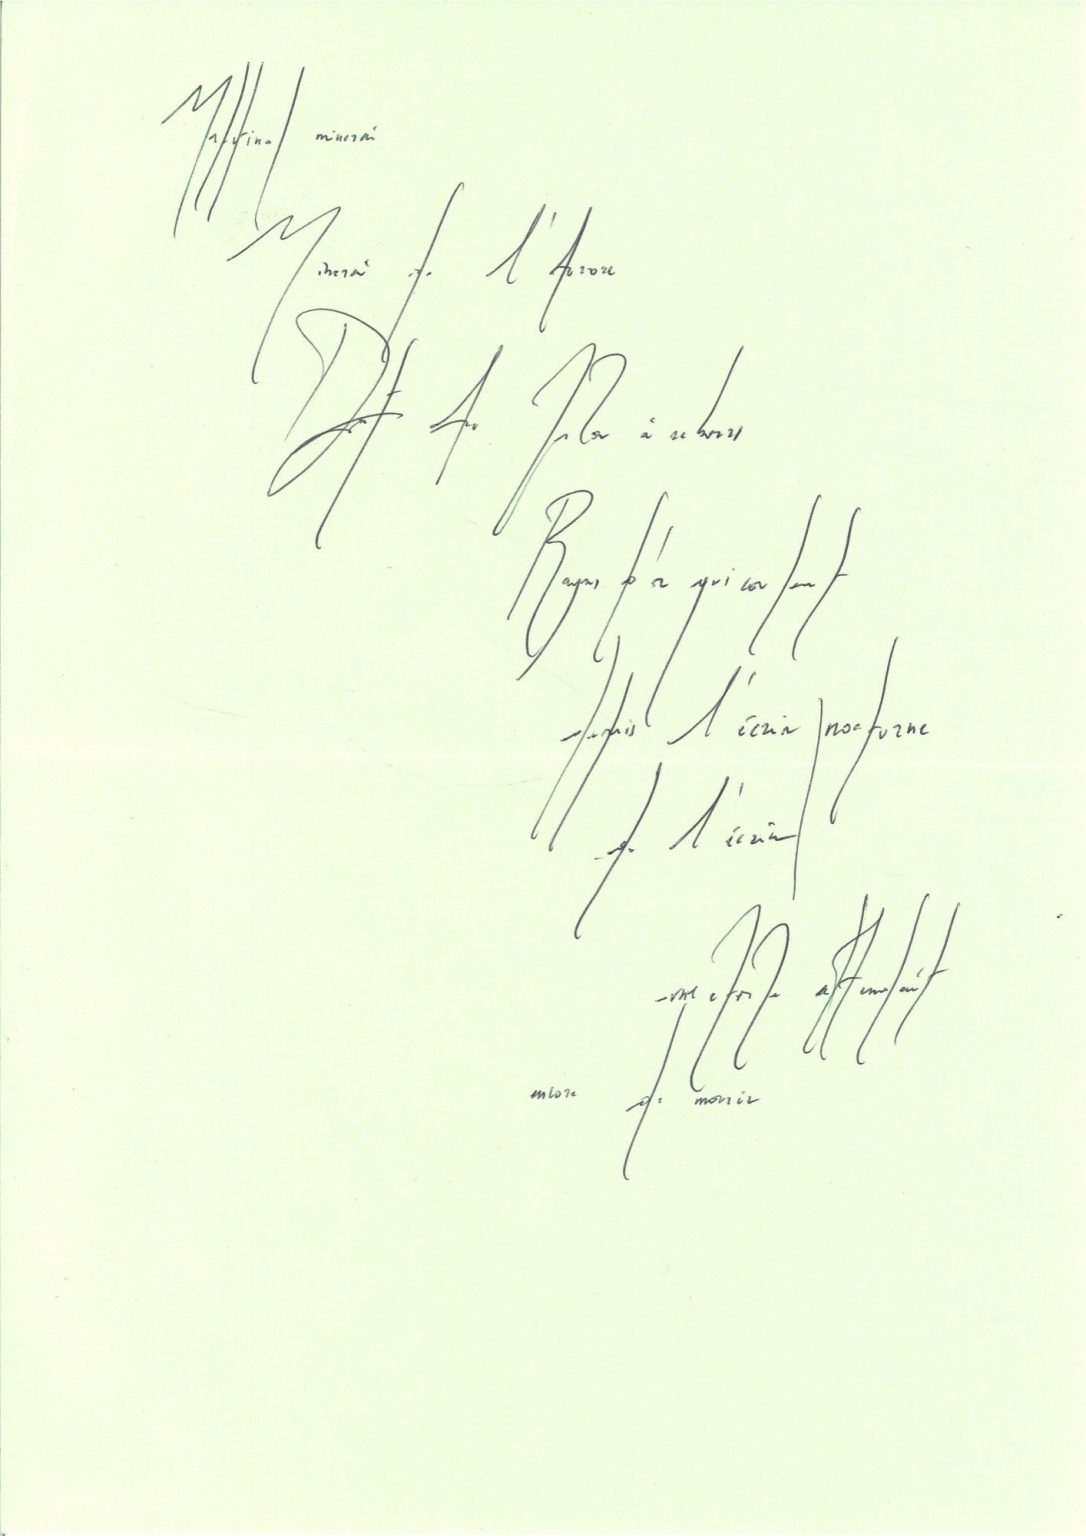 Matutinal minerai
Minerai de l'Aurore
à rebours
Rayons d'or qui coulent
depuis l'écrin nocturne
de l'écrin
attendait
encore de mourir